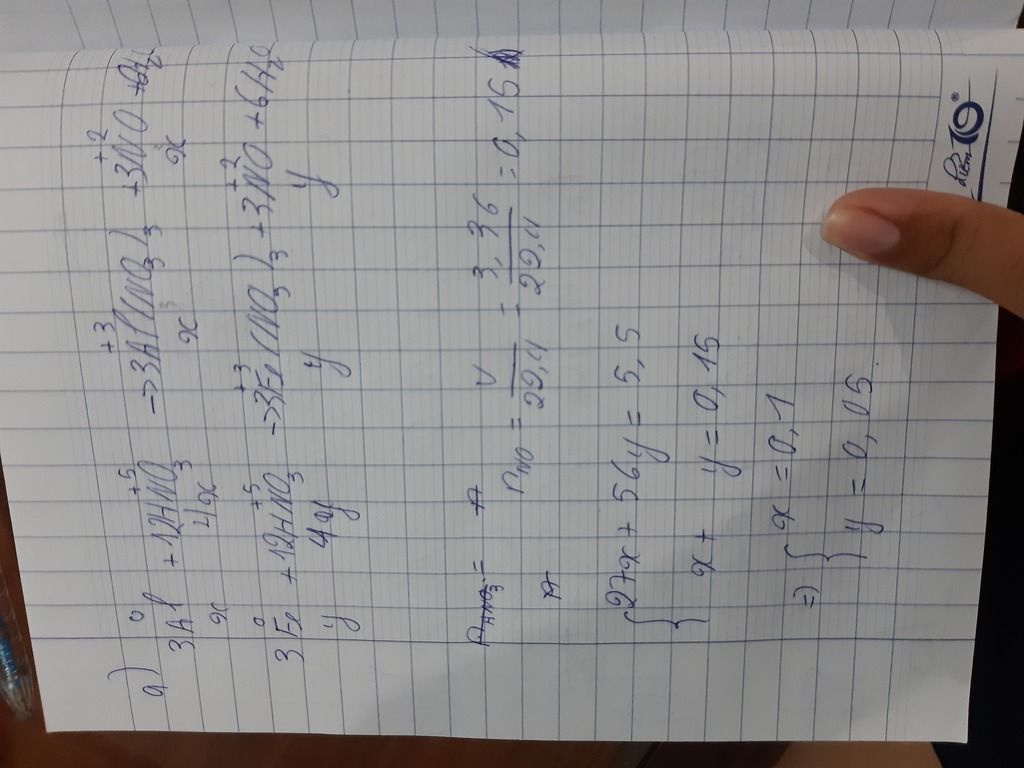 0 +5 +3 +2
a) 3Al + 12HNO3 → 3Al(NO3)3 + 3NO + 6H2O
x 4x x x
0 +5 +3 +2
3Fe + 12HNO3 → 3Fe(NO3)3 + 3NO + 6H2O
y 4y y y
nHNO3 =
nNO = V/22,4 = 3,36/22,4 = 0,15
{ 27x + 56y = 5,5
x + y = 0,15
=> { x = 0,1
y = 0,05.
Điểm 10